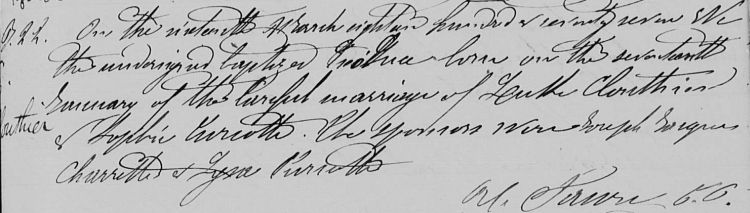 B. 22. On the nineteenth March eighteen hundred & seventy seven We
the undersigned baptized born on the seventeenth
January of the lawful marriage of Luke Clouthier
& Sophie Turcotte. The sponsors were Joseph Jacques
Charrette & Turcotte